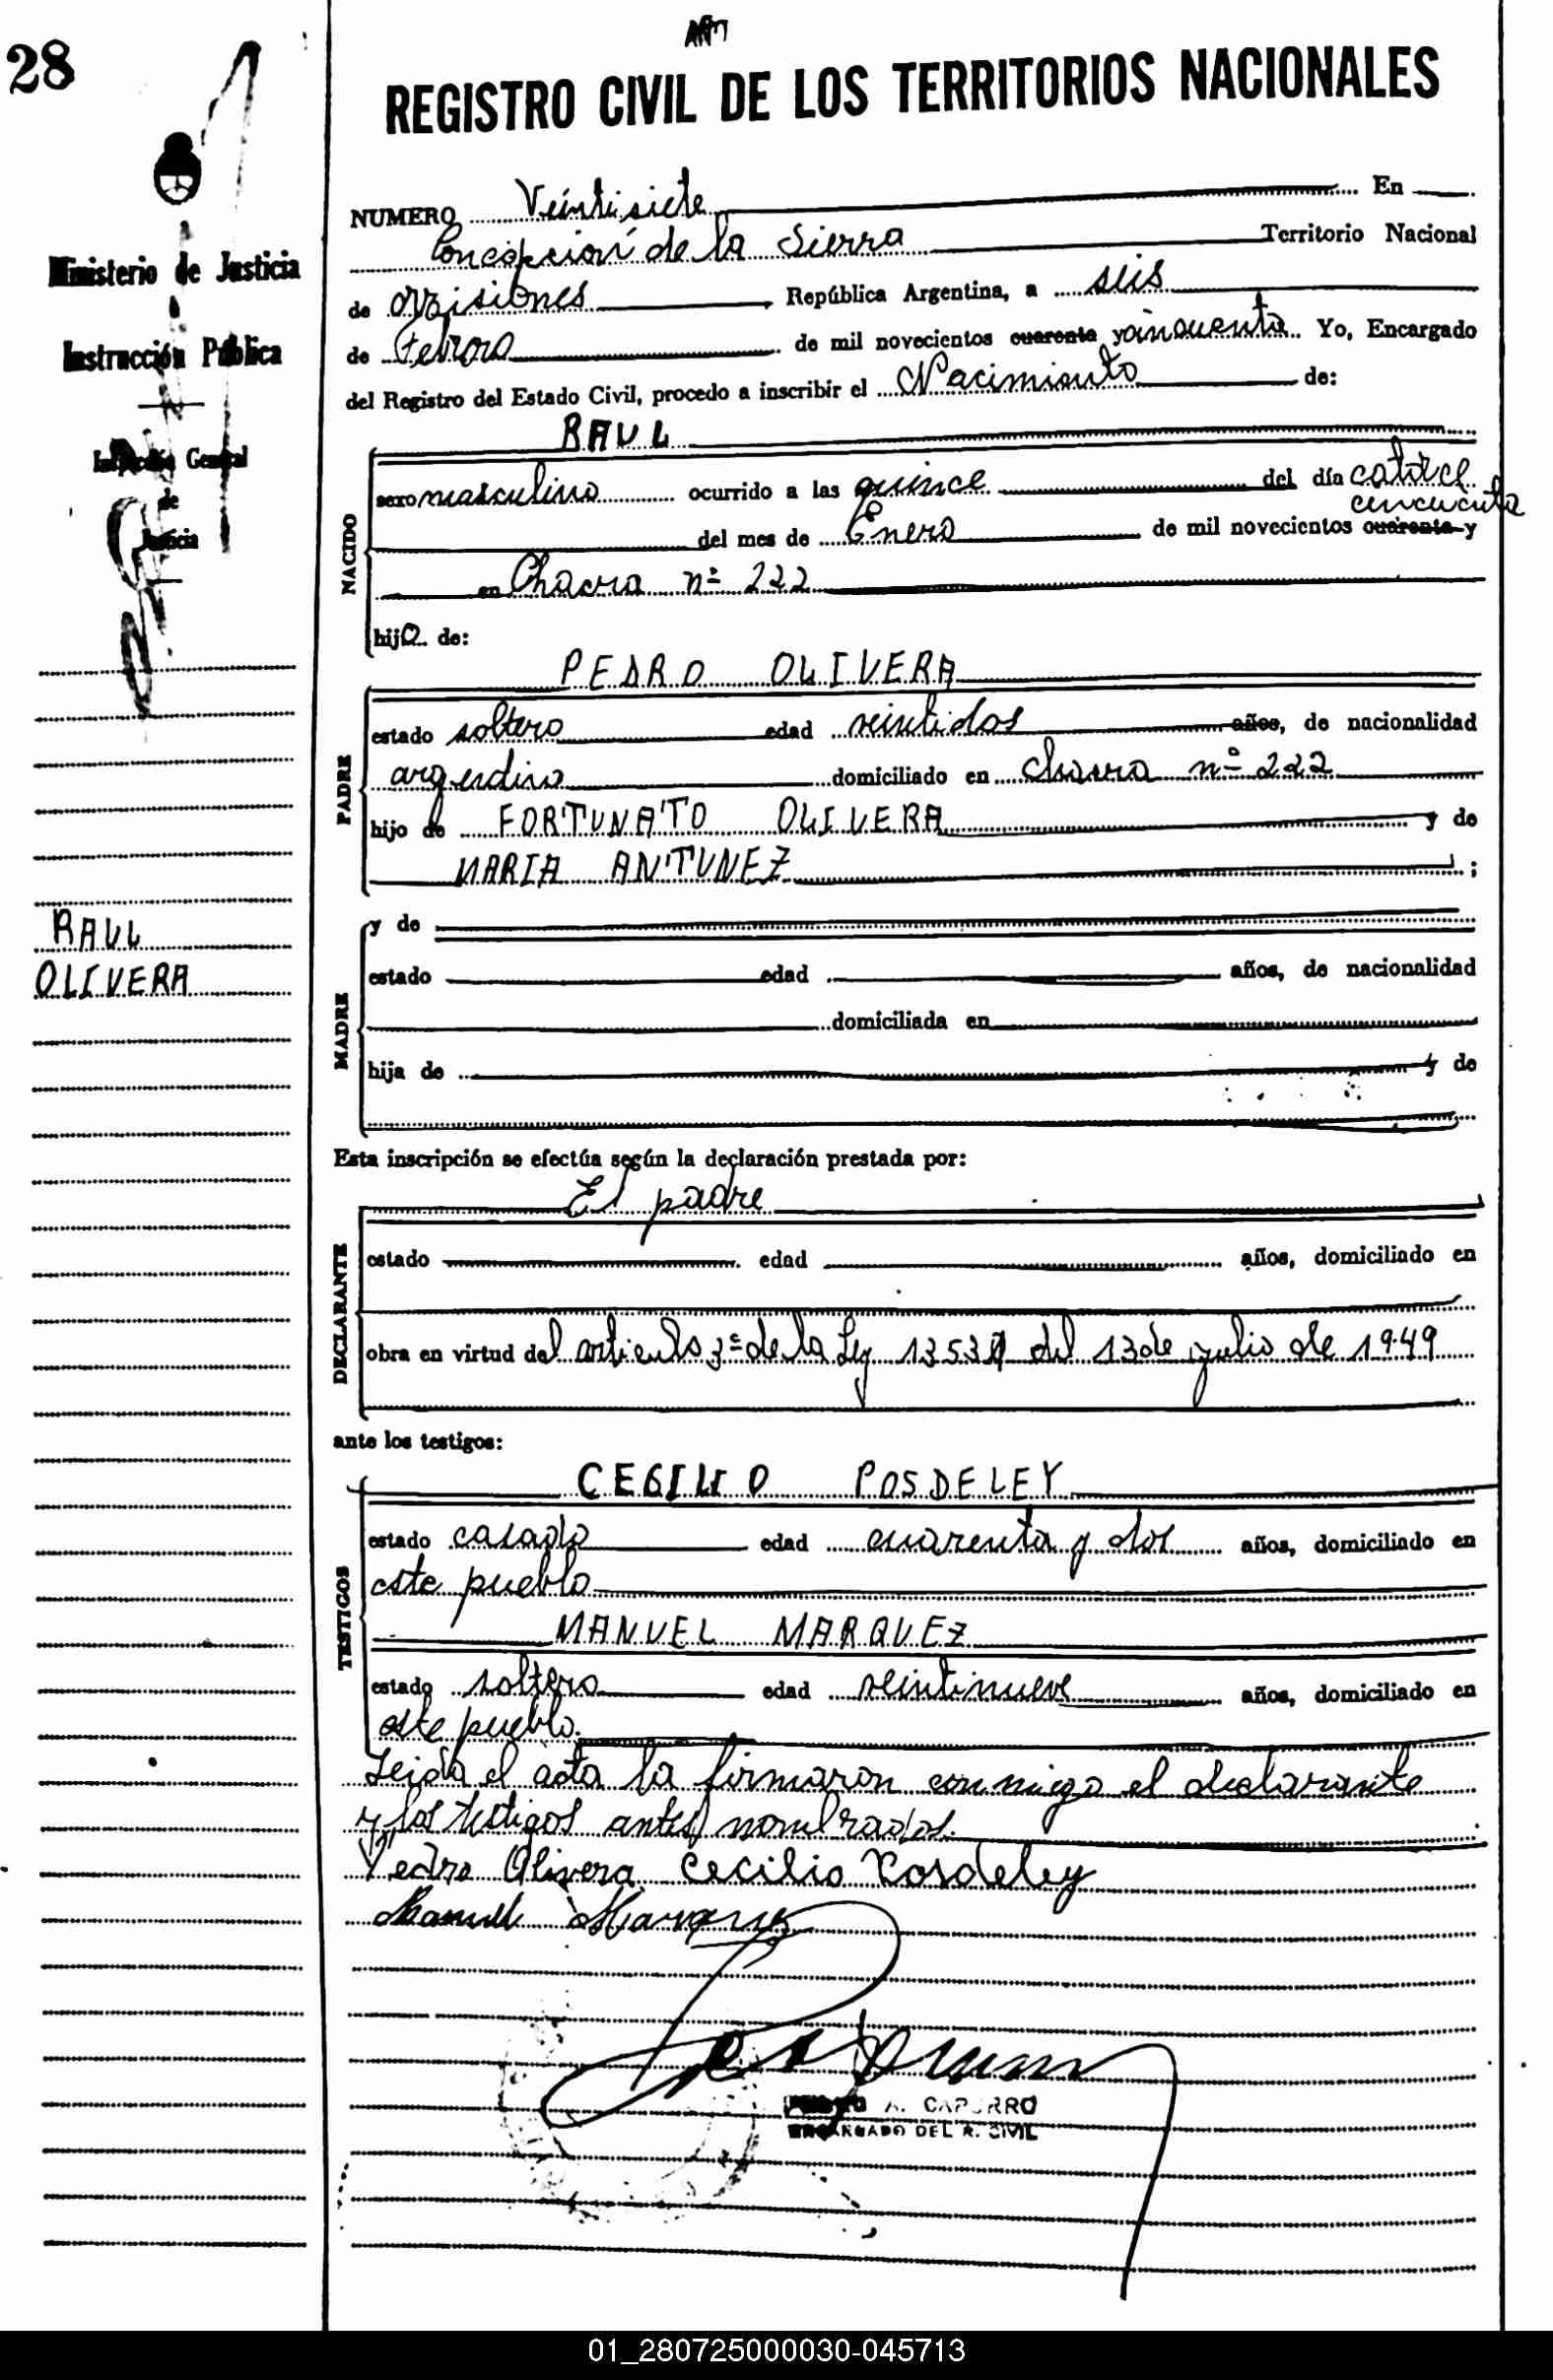 28
REGISTRO CIVIL DE LOS TERRITORIOS NACIONALES
Ministerio de Justicia
Instrucción Pública
Inspección General
de
Justicia
NUMERO Veintisiete En
Concepción de la Sierra Territorio Nacional
de Misiones República Argentina, a seis
de Febrero de mil novecientos cuarenta y cincuenta. Yo, Encargado
del Registro del Estado Civil, procedo a inscribir el Nacimiento de:
NACIDO
RAUL
sexo masculino ocurrido a las quince del día catorce
cincuenta
del mes de Enero de mil novecientos cuarenta y
en Chacra nº 222
hijo de:
PADRE
PEDRO OLIVERA
estado soltero edad veintidos años, de nacionalidad
argentino domiciliado en Chacra nº 222
hijo de FORTUNATO OLIVERA y de
MARIA ANTUNEZ ;
RAUL
OLIVERA
MADRE
y de
estado edad años, de nacionalidad
domiciliada en
hija de y de
Esta inscripción se efectúa según la declaración prestada por:
DECLARANTE
El padre
estado edad años, domiciliado en
obra en virtud del artículo 3º de la Ley del 13 de julio de 1949
ante los testigos:
TESTIGOS
CECILIO POSDELEY
estado casado edad cuarenta y dos años, domiciliado en
este pueblo
MANUEL MARQUEZ
estado soltero edad veintinueve años, domiciliado en
este pueblo.
Leida el acta la firmaron conmigo el declarante
y los testigos antes nombrados.
Pedro Olivera Cecilio Posdeley
Manuel Marquez
A. CAPURRO
ENCARGADO DEL R. CIVIL
01_280725000030-045713